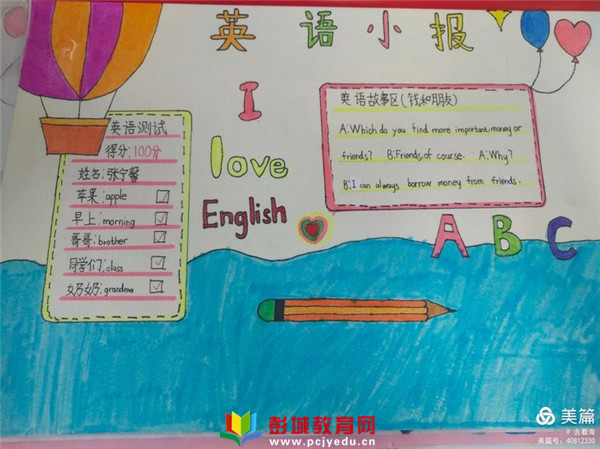 英语小报
I
love
English
英语测试
得分:100分
姓名:张宁馨
苹果:apple
早上:morning
哥哥:brother
同学们:class
奶奶:grandma
英语故事区(钱和朋友)
A:Which do you find more important,money or
friends? B:Friends,of course. A:Why?
B:I can always borrow money from friends.
A B C
彭城教育网
www.pcjyedu.cn
美篇
#去看海
美篇号:40812330